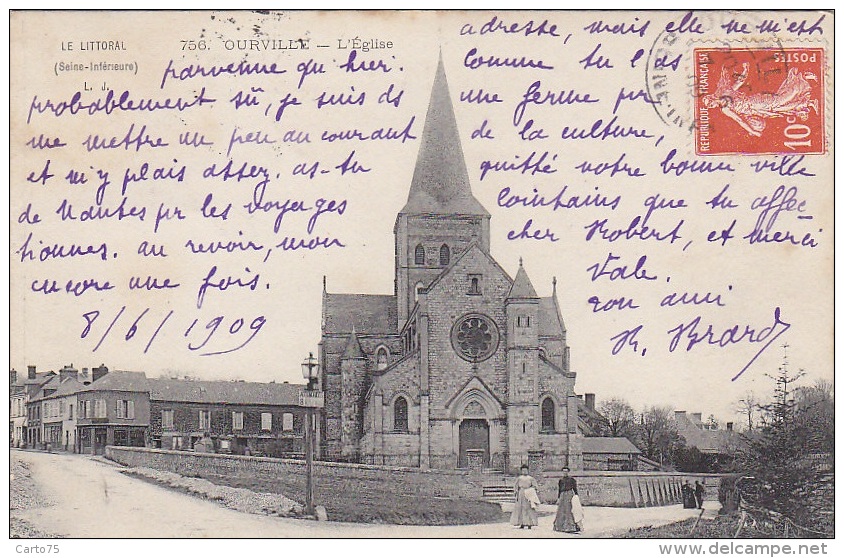 LE LITTORAL
(Seine-Inférieure)
L. J.
756. OURVILLE — L'Église
adresse, mais elle ne m'est
parvenue qu'hier. Comme tu l'as
probablement sû, je suis ds une ferme pr
me mettre un peu au courant de la culture,
et m'y plais assez. as-tu quitté notre bonne ville
de Nantes pr les voyages lointains que tu affec
tionnes. au revoir, mon cher Robert, et merci
encore une fois. Vale.
ton ami
8/6/1909 R. Brard
RÉPUBLIQUE FRANÇAISE
POSTES
10c
delcampe.net
Card75